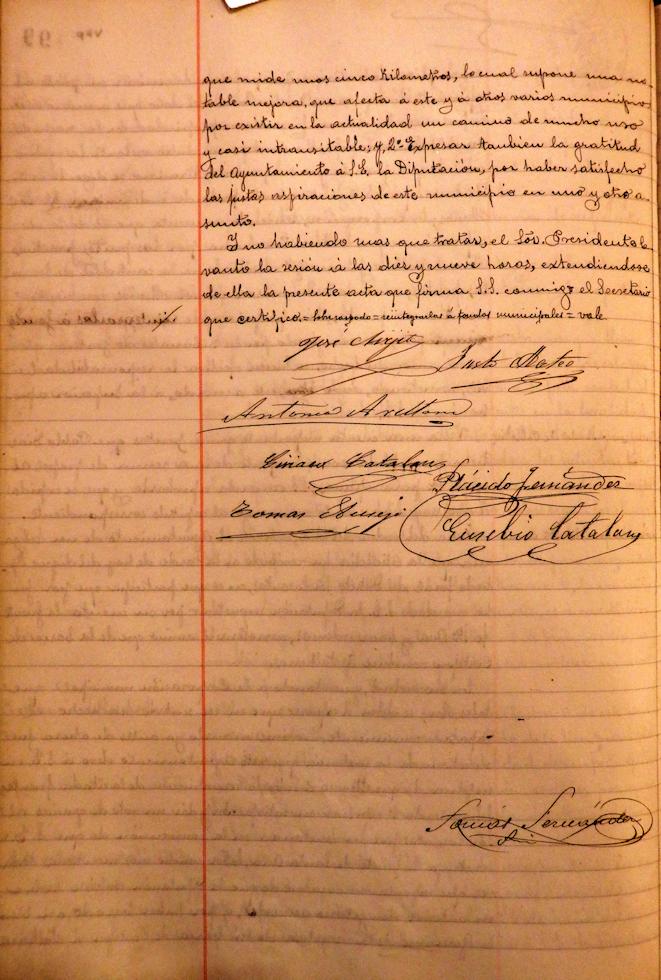 que mide unos cinco kilometros, lo cual supone una no-
table mejora, que afecta á este y á otros varios municipios
por existir en la actualidad un camino de mucho uso
y casi intransitable; y, 2º Expresar tambien la gratitud
del Ayuntamiento á S.E. la Diputación, por haber satisfecho
las justas aspiraciones de este municipio en uno y otro a-
sunto.
Y no habiendo mas que tratar, el Sor. Presidente le
vantó la sesión á las diez y nueve horas, extendiendose
de ella la presente acta que firma S.S. conmigo el Secretario
que certifico. = Sobreraspado = reintegrarlas á fondos municipales = vale
José
Justo Mateo
Antonio Arellano
Ciriaco Catalan
Plácido Fernández
Tomas
Eusebio Catalan
Tomás Fernández